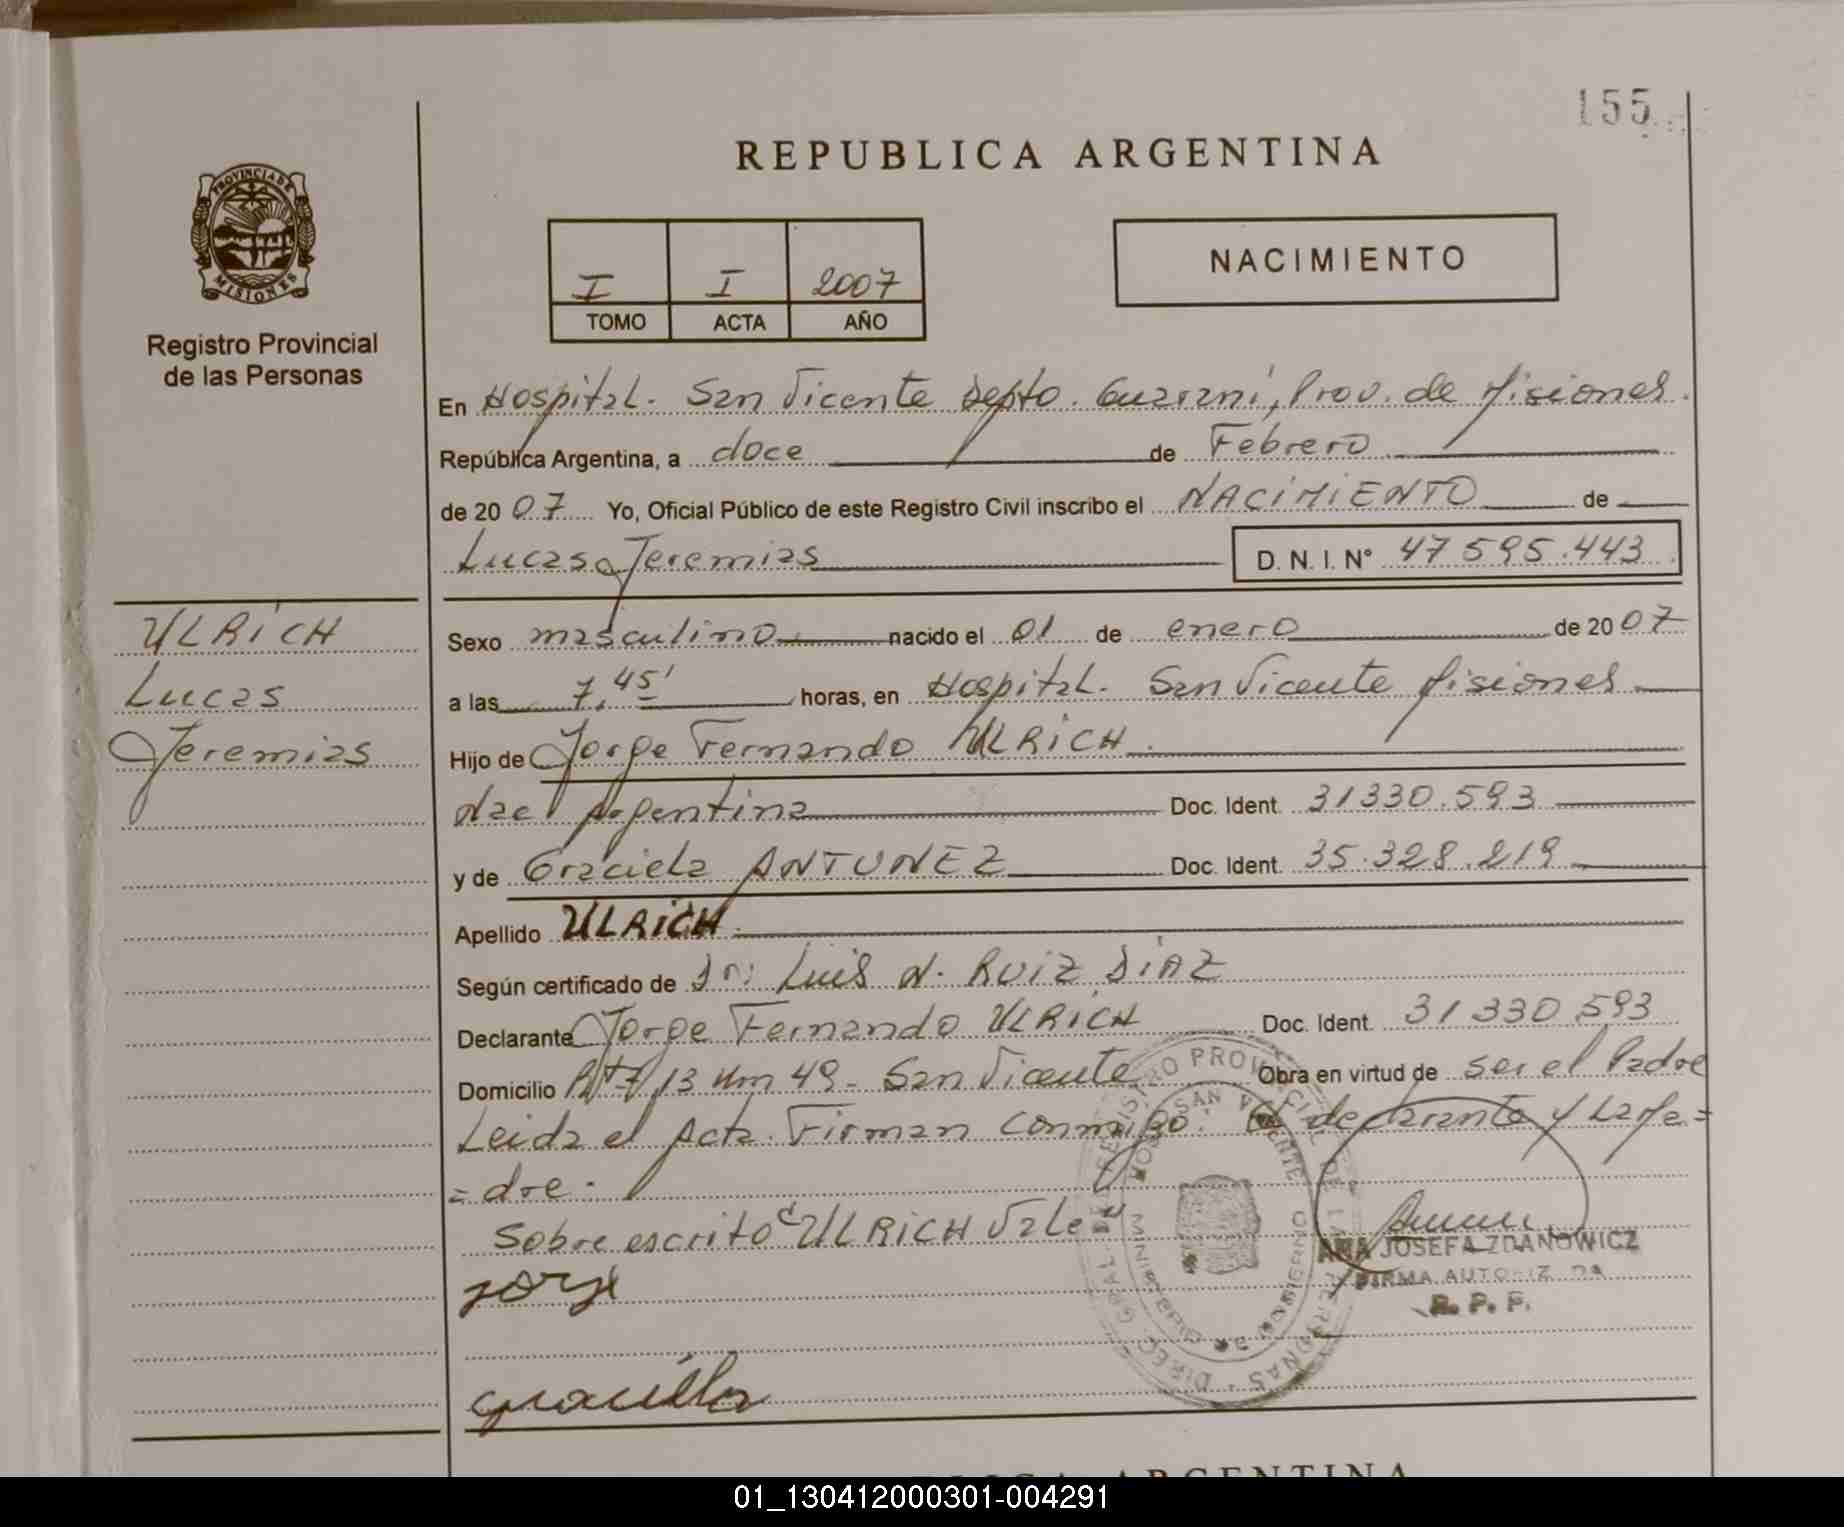 155
REPUBLICA ARGENTINA
PROVINCIA DE
MISIONES
Registro Provincial
de las Personas
I I 2007
TOMO ACTA AÑO
NACIMIENTO
En Hospital. San Vicente Depto. Guarani, Prov. de Misiones.
República Argentina, a doce de Febrero
de 2007 Yo, Oficial Público de este Registro Civil inscribo el NACIMIENTO de
Lucas Jeremias D. N. I. N° 47 595.443
ULRICH
Lucas
Jeremias
Sexo masculino nacido el 01 de enero de 2007
a las 7,45' horas, en Hospital. San Vicente Misiones
Hijo de Jorge Fernando ULRICH
nac Argentina Doc. Ident. 31330.593
y de Graciela ANTUNEZ Doc. Ident. 35.328.219
Apellido ULRICH
Según certificado de Dr: Luis N. RUIZ DIAZ
Declarante Jorge Fernando ULRICH Doc. Ident. 31 330 593
Domicilio 13 Km 49 - San Vicente Obra en virtud de ser el Padre
Leida el Acta. Firman conmigo: El declarante y La Ma=
=dre.
Sobre escrito "ULRICH Vale"
Jorge
Graciela
ANA JOSEFA ZDANOWICZ
FIRMA AUTORIZADA
R. P. P.
DIREC. GRAL. DEL REGISTRO PROVINCIAL DE LAS PERSONAS
HOSP. SAN VICENTE
01_130412000301-004291